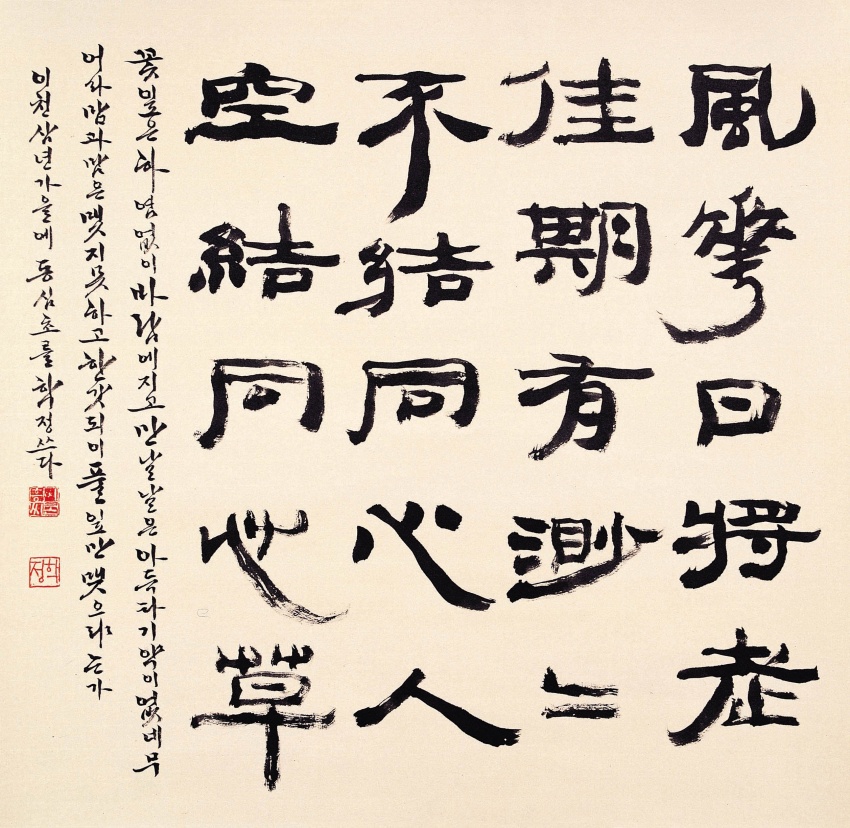 風華日將老
佳期有渺〻
不結同心人
空結同心草
꽃잎은 하염없이 바람에 지고 만날 날은 아득타 기약이 없네 무
어라 맘과 맘은 맺지 못하고 한갓되이 풀잎만 맺으랴는가
이천삼년 가을에 동심초를 학정 쓰다
학정